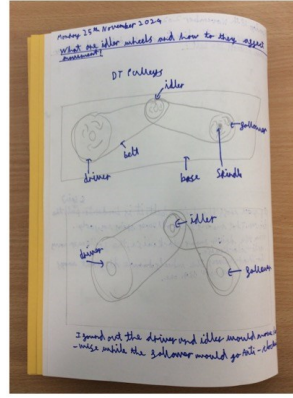 Monday 25th November 2024
What are idler wheels and how to they affect
movement?
DT Pulleys
idler
follower
driver
belt
base
spindle
idler
driver
follower
I found out the driver and idler would move
-wise while the follower would go Anti-clock